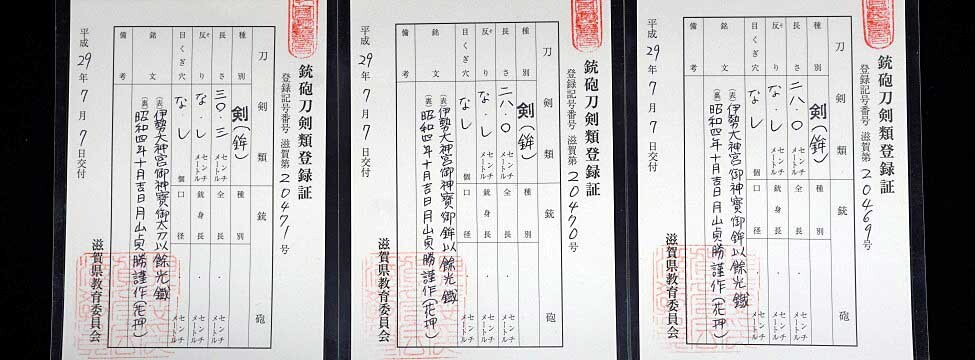 銃砲刀剣類登録証
登録記号番号 滋賀第20469号
刀剣類
銃砲
種別 剣(鉾)
長さ 二八・〇 センチメートル
反り な・し センチメートル
目くぎ穴 なし 個
銘文 (表)伊勢大神宮御神寳御鉾以餘光鐵
(裏)昭和四年十月吉日月山貞勝謹作(花押)
備考
種別
全長 ・ センチメートル
銃身長 ・ センチメートル
口径 ・ センチメートル
平成29年7月7日交付
滋賀県教育委員会
銃砲刀剣類登録証
登録記号番号 滋賀第20470号
刀剣類
銃砲
種別 剣(鉾)
長さ 二八・〇 センチメートル
反り な・し センチメートル
目くぎ穴 なし 個
銘文 (表)伊勢大神宮御神寳御鉾以餘光鐵
(裏)昭和四年十月吉日月山貞勝謹作(花押)
備考
種別
全長 ・ センチメートル
銃身長 ・ センチメートル
口径 ・ センチメートル
平成29年7月7日交付
滋賀県教育委員会
銃砲刀剣類登録証
登録記号番号 滋賀第20471号
刀剣類
銃砲
種別 剣(鉾)
長さ 三〇・三 センチメートル
反り な・し センチメートル
目くぎ穴 なし 個
銘文 (表)伊勢大神宮御神寳御太刀以餘光鐵
(裏)昭和四年十月吉日月山貞勝謹作(花押)
備考
種別
全長 ・ センチメートル
銃身長 ・ センチメートル
口径 ・ センチメートル
平成29年7月7日交付
滋賀県教育委員会